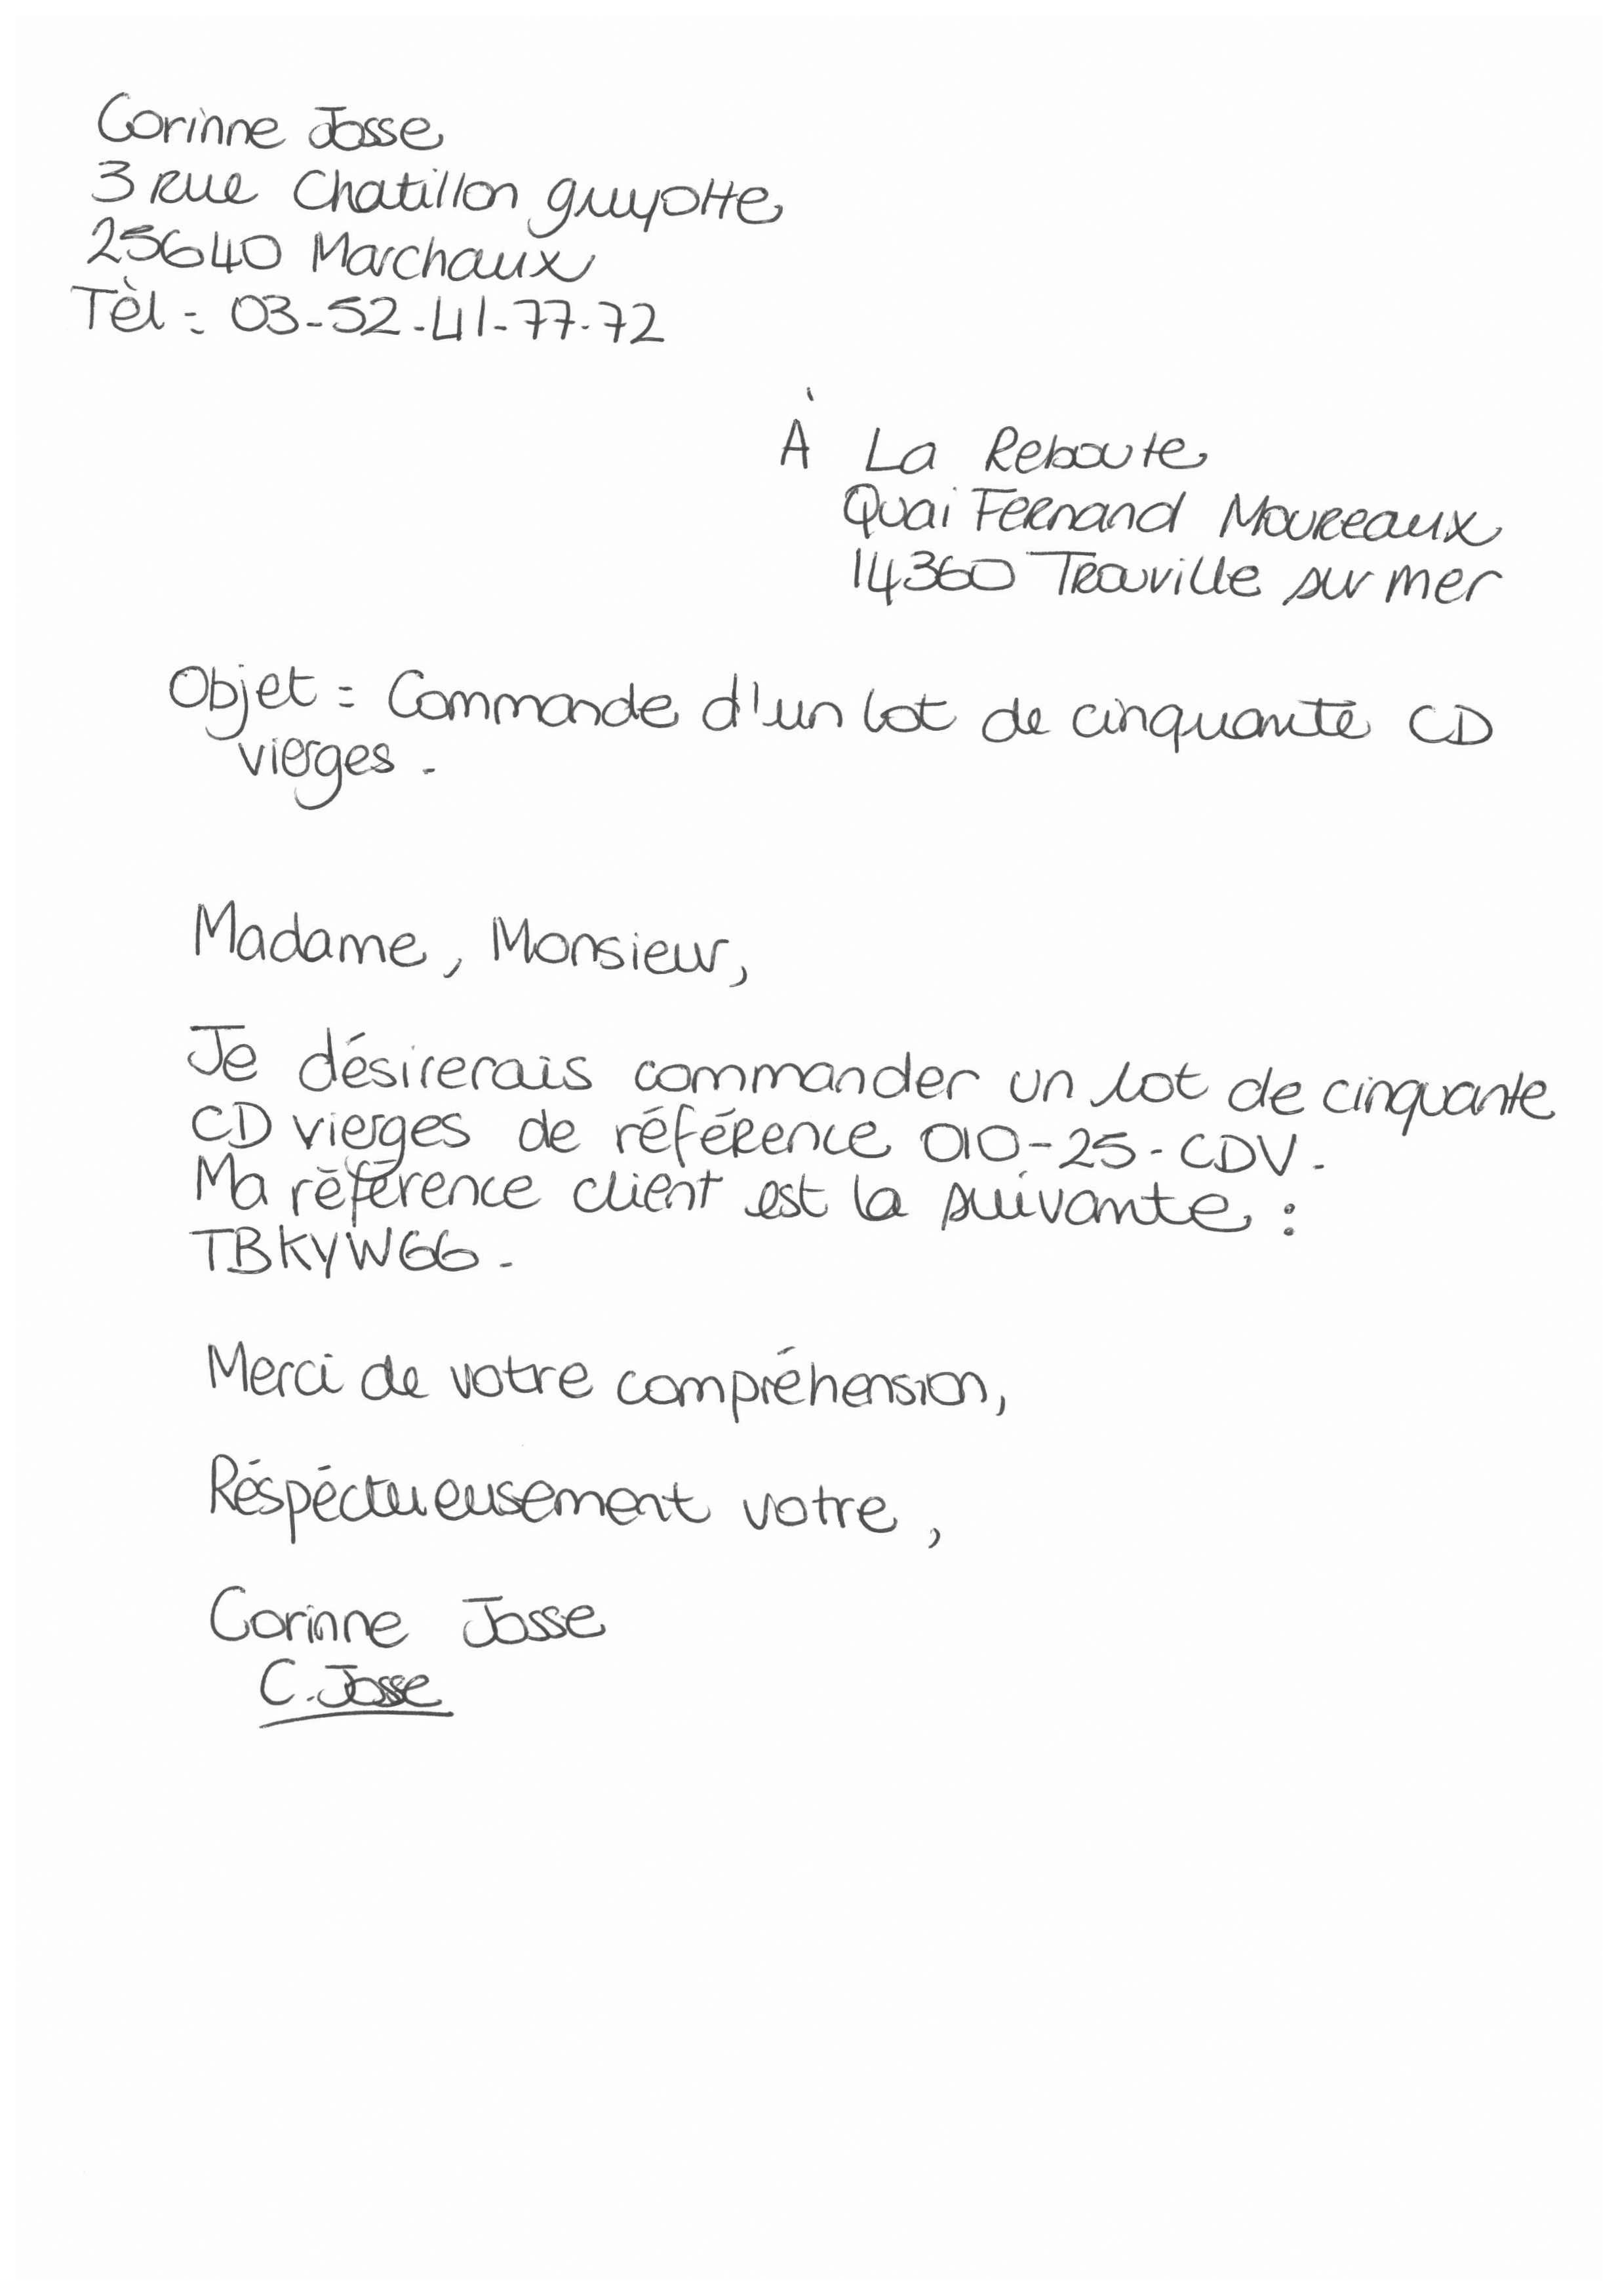 Corinne Josse
3 rue Chatillon guyotte
25640 Marchaux
Tèl : 03-52-41-77-72
À La Reboute
Quai Fernand Moureaux
14360 Trouville sur mer
Objet : Commande d'un lot de cinquante CD
vierges.
Madame, Monsieur,
Je désirerais commander un lot de cinquante
CD vierges de référence 010-25-CDV.
Ma référence client est la suivante :
TBKYW66.
Merci de votre compréhension,
Réspéctueusement votre,
Corinne Josse
C. Josse